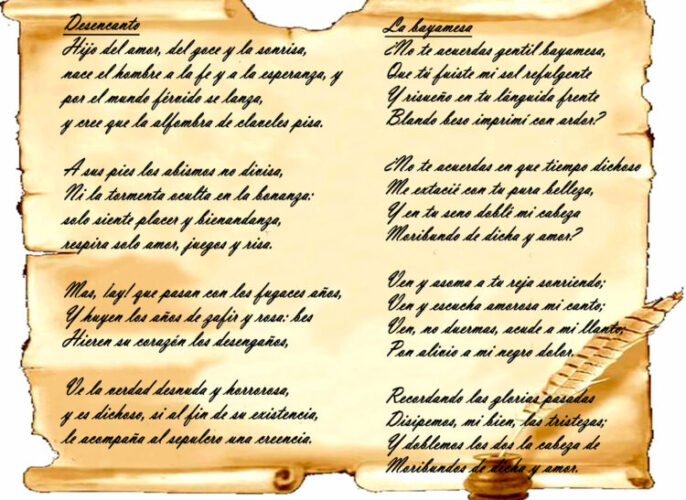 Desencanto
Hijo del amor, del goce y la sonrisa,
nace el hombre a la fe y a la esperanza, y
por el mundo férvido se lanza,
y cree que la alfombra de claveles pisa.
A sus pies los abismos no divisa,
Ni la tormenta oculta en la bonanza:
solo siente placer y bienandanza,
respira solo amor, juegos y risa.
Mas, ¡ay! que pasan con los fugaces años,
Y huyen los años de zafir y rosa: bes
Hieren su corazón los desengaños,
Ve la verdad desnuda y horrorosa,
y es dichoso, si al fin de su existencia,
le acompaña al sepulcro una creencia.
La bayamesa
¿No te acuerdas gentil bayamesa,
Que tú fuiste mi sol refulgente
Y risueño en tu lánguida frente
Blando beso imprimí con ardor?
¿No te acuerdas en que tiempo dichoso
Me extacié con tu pura belleza,
Y en tu seno doblé mi cabeza
Moribundo de dicha y amor?
Ven y asoma a tu reja sonriendo;
Ven y escucha amorosa mi canto;
Ven, no duermas, acude a mi llanto;
Pon alivio a mi negro dolor.
Recordando las glorias pasadas
Disipemos, mi bien, las tristezas;
Y doblemos los dos la cabeza de
Moribundos de dicha y amor.